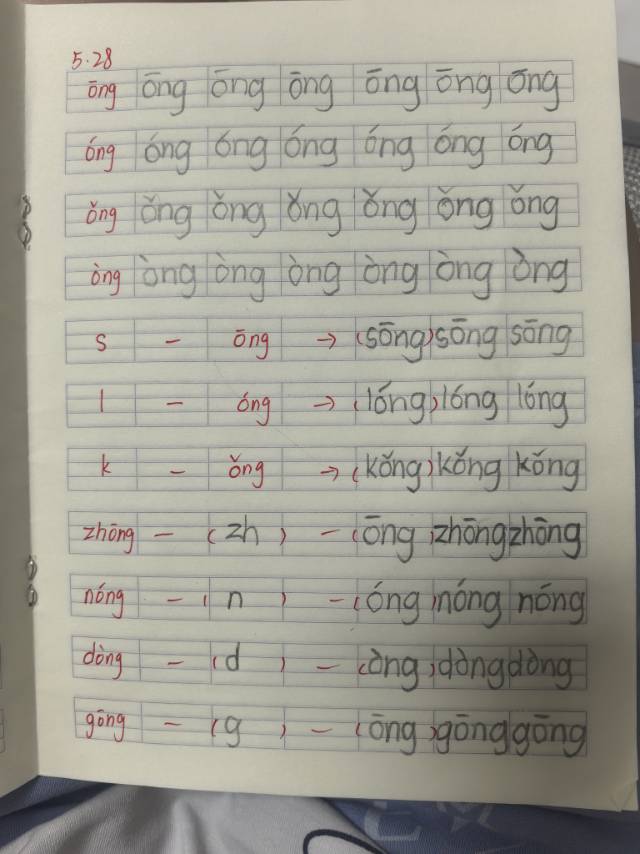 5.28
ōng ōng ōng ōng ōng ōng ōng
óng óng óng óng óng óng óng
ǒng ǒng ǒng ǒng ǒng ǒng ǒng
òng òng òng òng òng òng òng
s – ōng → (sōng) sōng sōng
l – óng → (lóng) lóng lóng
k – ǒng → (kǒng) kǒng kǒng
zhōng – (zh) – (ōng) zhōng zhōng
nóng – (n) – (óng) nóng nóng
dòng – (d) – (òng) dòng dòng
gōng – (g) – (ōng) gōng gōng